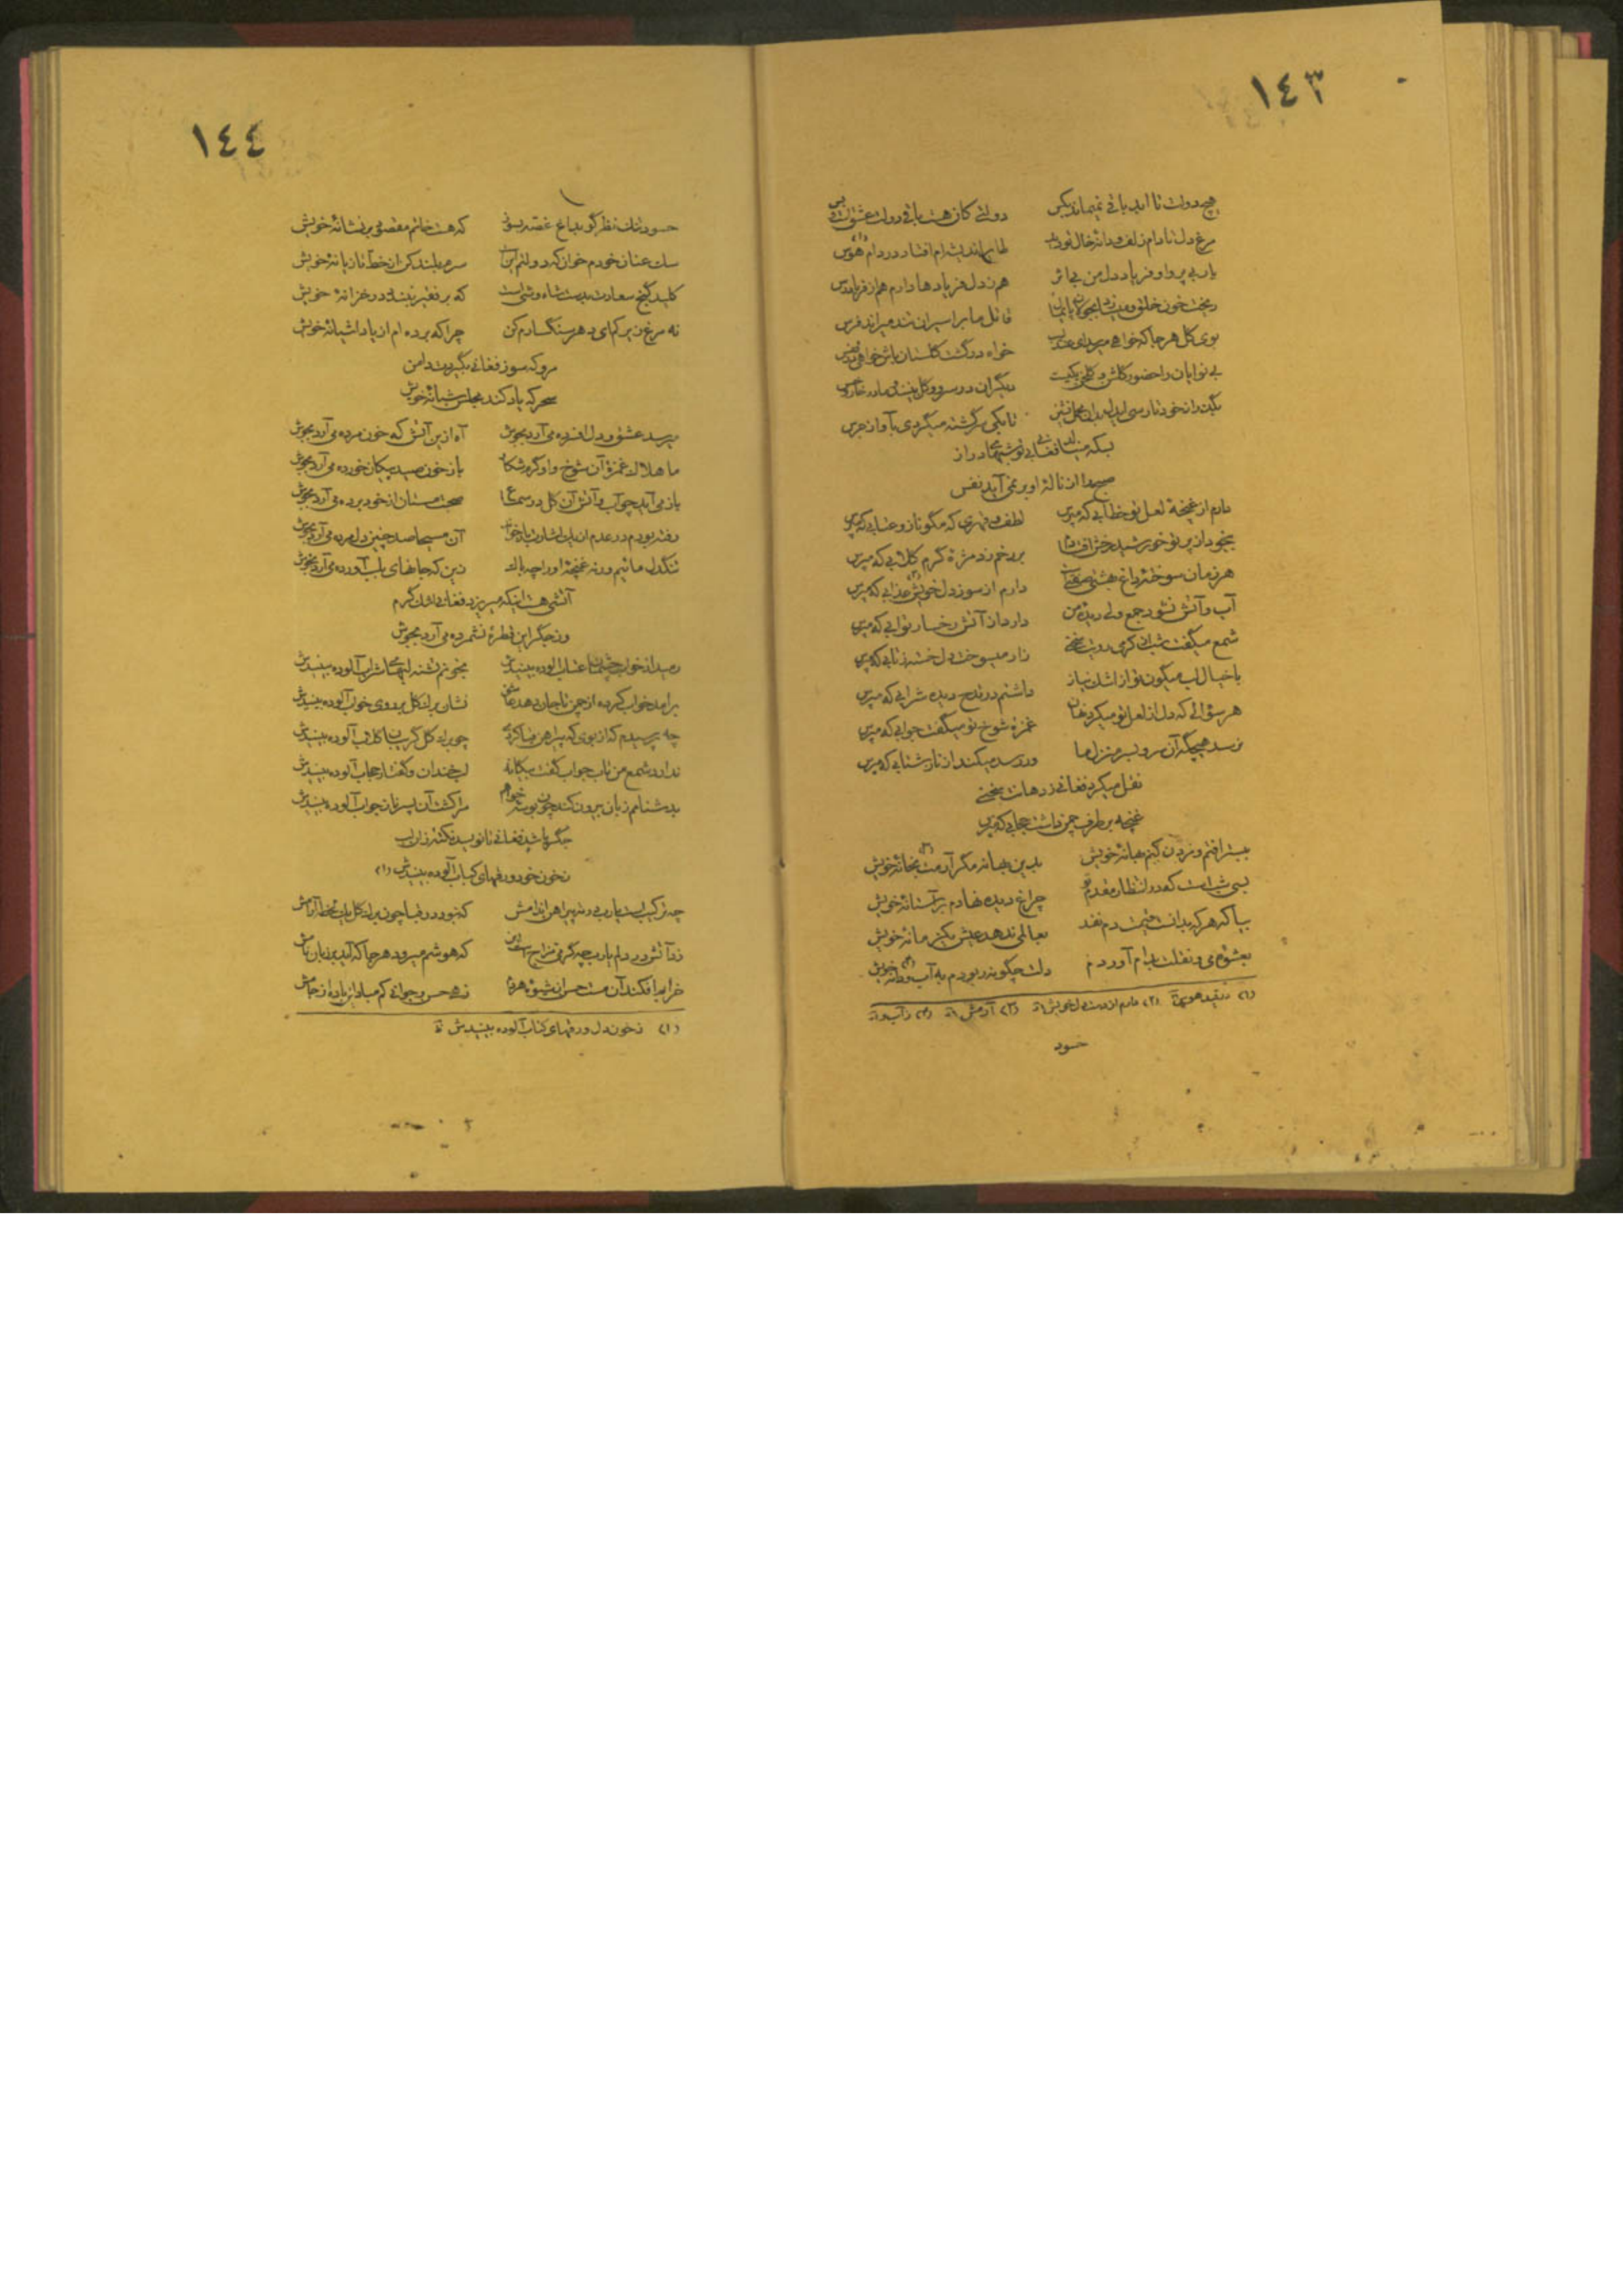 ١٤٣
هیچ دولت تا ابد باقی نمیماند بکس دولتی کان هست باقی دولت عشقست و بس
مرغ دل تا دام زلف و دانهٔ خال تو دید طایر اندیشه‌ام افتاد در دام هوس
یار بی پروا و فریاد دل من بی اثر هم ز دل فریادها دارم هم از فریادرس
ریخت خون خلق و قاتل ما بر اسیران تند میراند فرس
بوی گل هر جا که خواهی خواه در گشت گلستان باش خواهی در قفس
بی نوایان را حضور گلشن و گلخن یکیست دیگران در سرو و گل بینند و ما در خار و خس
تا بکی سرگشته میگردی بآواز جرس
بسکه مینالد فغانی بی تو شبهای دراز
صبحدم از نالهٔ او بر نمی آید نفس
دارم از غنچهٔ لعل تو خطابی که مپرس لطف و قهری که مگو ناز و عتابی که مپرس
بر رخم زد مژهٔ گرم گلابی که مپرس
هر زمان سوختهٔ داغ بهشتی صفتی دارم از سوز دل خویش عذابی که مپرس
آب و آتش نشود جمع ولی دیدهٔ من دارد از آتش رخسار تو آبی که مپرس
شمع میگفت شب از گرمی رویت سخنی زار میسوخت دل خسته ز تابی که مپرس
با خیال لب میگون تو از اشک نیاز داشتم در قدح دیده شرابی که مپرس
هر سؤالی که دل از لعل تو میکرد نهان غمزهٔ شوخ تو میگفت جوابی که مپرس
نرسد هیچگه آن سرو بسر منزل ما ور رسد میکند از ناز شتابی که مپرس
نقل میکرد فغانی ز دهانت سخنی
غنچه بر طرف چمن داشت حجابی که مپرس
ببستر افتم و مردن کنم بهانهٔ خویش بدین بهانه مگر آرمت بخانهٔ خویش
بسی شبست که در انتظار مقدم تو چراغ دیده نهادم بر آستانهٔ خویش
بیا که هر که بدانست قیمت دم نقد بعالمی ندهد عیش یکزمانهٔ خویش
بعشوهٔ می و نقلت بدام آوردم دلت چگونه ربودم به آب و دانهٔ خویش
حسود
١٤٤
حسود تنگ نظر گو بداغ غصه بسوز که هست خاتم مقصود بر نشانهٔ خویش
سگ عنان خودم خوان که دولتم اینست سرم بلند کن از خط تازیانهٔ خویش
کلید گنج سعادت بدست شاه وشی است که بر فقیر نبندد در خزانهٔ خویش
نه مرغ زیرکم ای دهر سنگسارم کن چرا که برده‌ام از یاد آشیانهٔ خویش
مرو که سوز فغانی بگیردت دامن
سحر که یاد کند مجلس شبانهٔ خویش
میرسد عشق و دل افسرده می آرد بجوش آه ازین آتش که خون مرده می آرد بجوش
ما هلاک غمزهٔ آن شوخ و او گرم شکار باز خون صید پیکان خورده می آرد بجوش
باز می آید چو آب و آتش آن گل در سماع صحبت مستان از خود برده می آرد بجوش
آن مسیحا صد چنین دل مرده می آرد بجوش
تنگدل مائیم ورنه غنچهٔ او را چه باک زین که جانهای بلب آورده می آرد بجوش
آتشی هست اینکه میریزد فغانی اشک گرم
وز جگر این قطرهٔ نشمرده می آرد بجوش
رمید از خواب چشمش را عتاب آلوده بینیدش بخونم تشنه لبهای شراب آلوده بینیدش
نشان برگ گل بر روی خواب آلوده بینیدش
چه پرسیدم که از بوی که پیراهن قبا کردی چو برگ گل گریبان گلاب آلوده بینیدش
ندارد شمع من تاب جواب گفت بیگانه لب خندان و گفتار حجاب آلوده بینیدش
بدشنامم زبان بیرون کند چون بوسه خواهم مرا کشت آن پسر ناز جواب آلوده بینیدش
جگر پاشید فغانی تا نویسد نکته زان لب
ز خون خود ورقهای کتاب آلوده بینیدش (١)
چه ترکیب است یارب در ته پیراهن اندامش که نبود در قبا چون برگ گل یک لحظه آرامش
زد آتش در دلم یارب چه گرمی در مزاج است این که هوشم میرود هر جا که آید بر زبان نامش
خرابم افکند آن مست حسن از شیوهٔ هر دم زهی حسن و جوانی کم مبادا باده از جامش
(١) ز خون دل ورقهای کتاب آلوده بینیدش